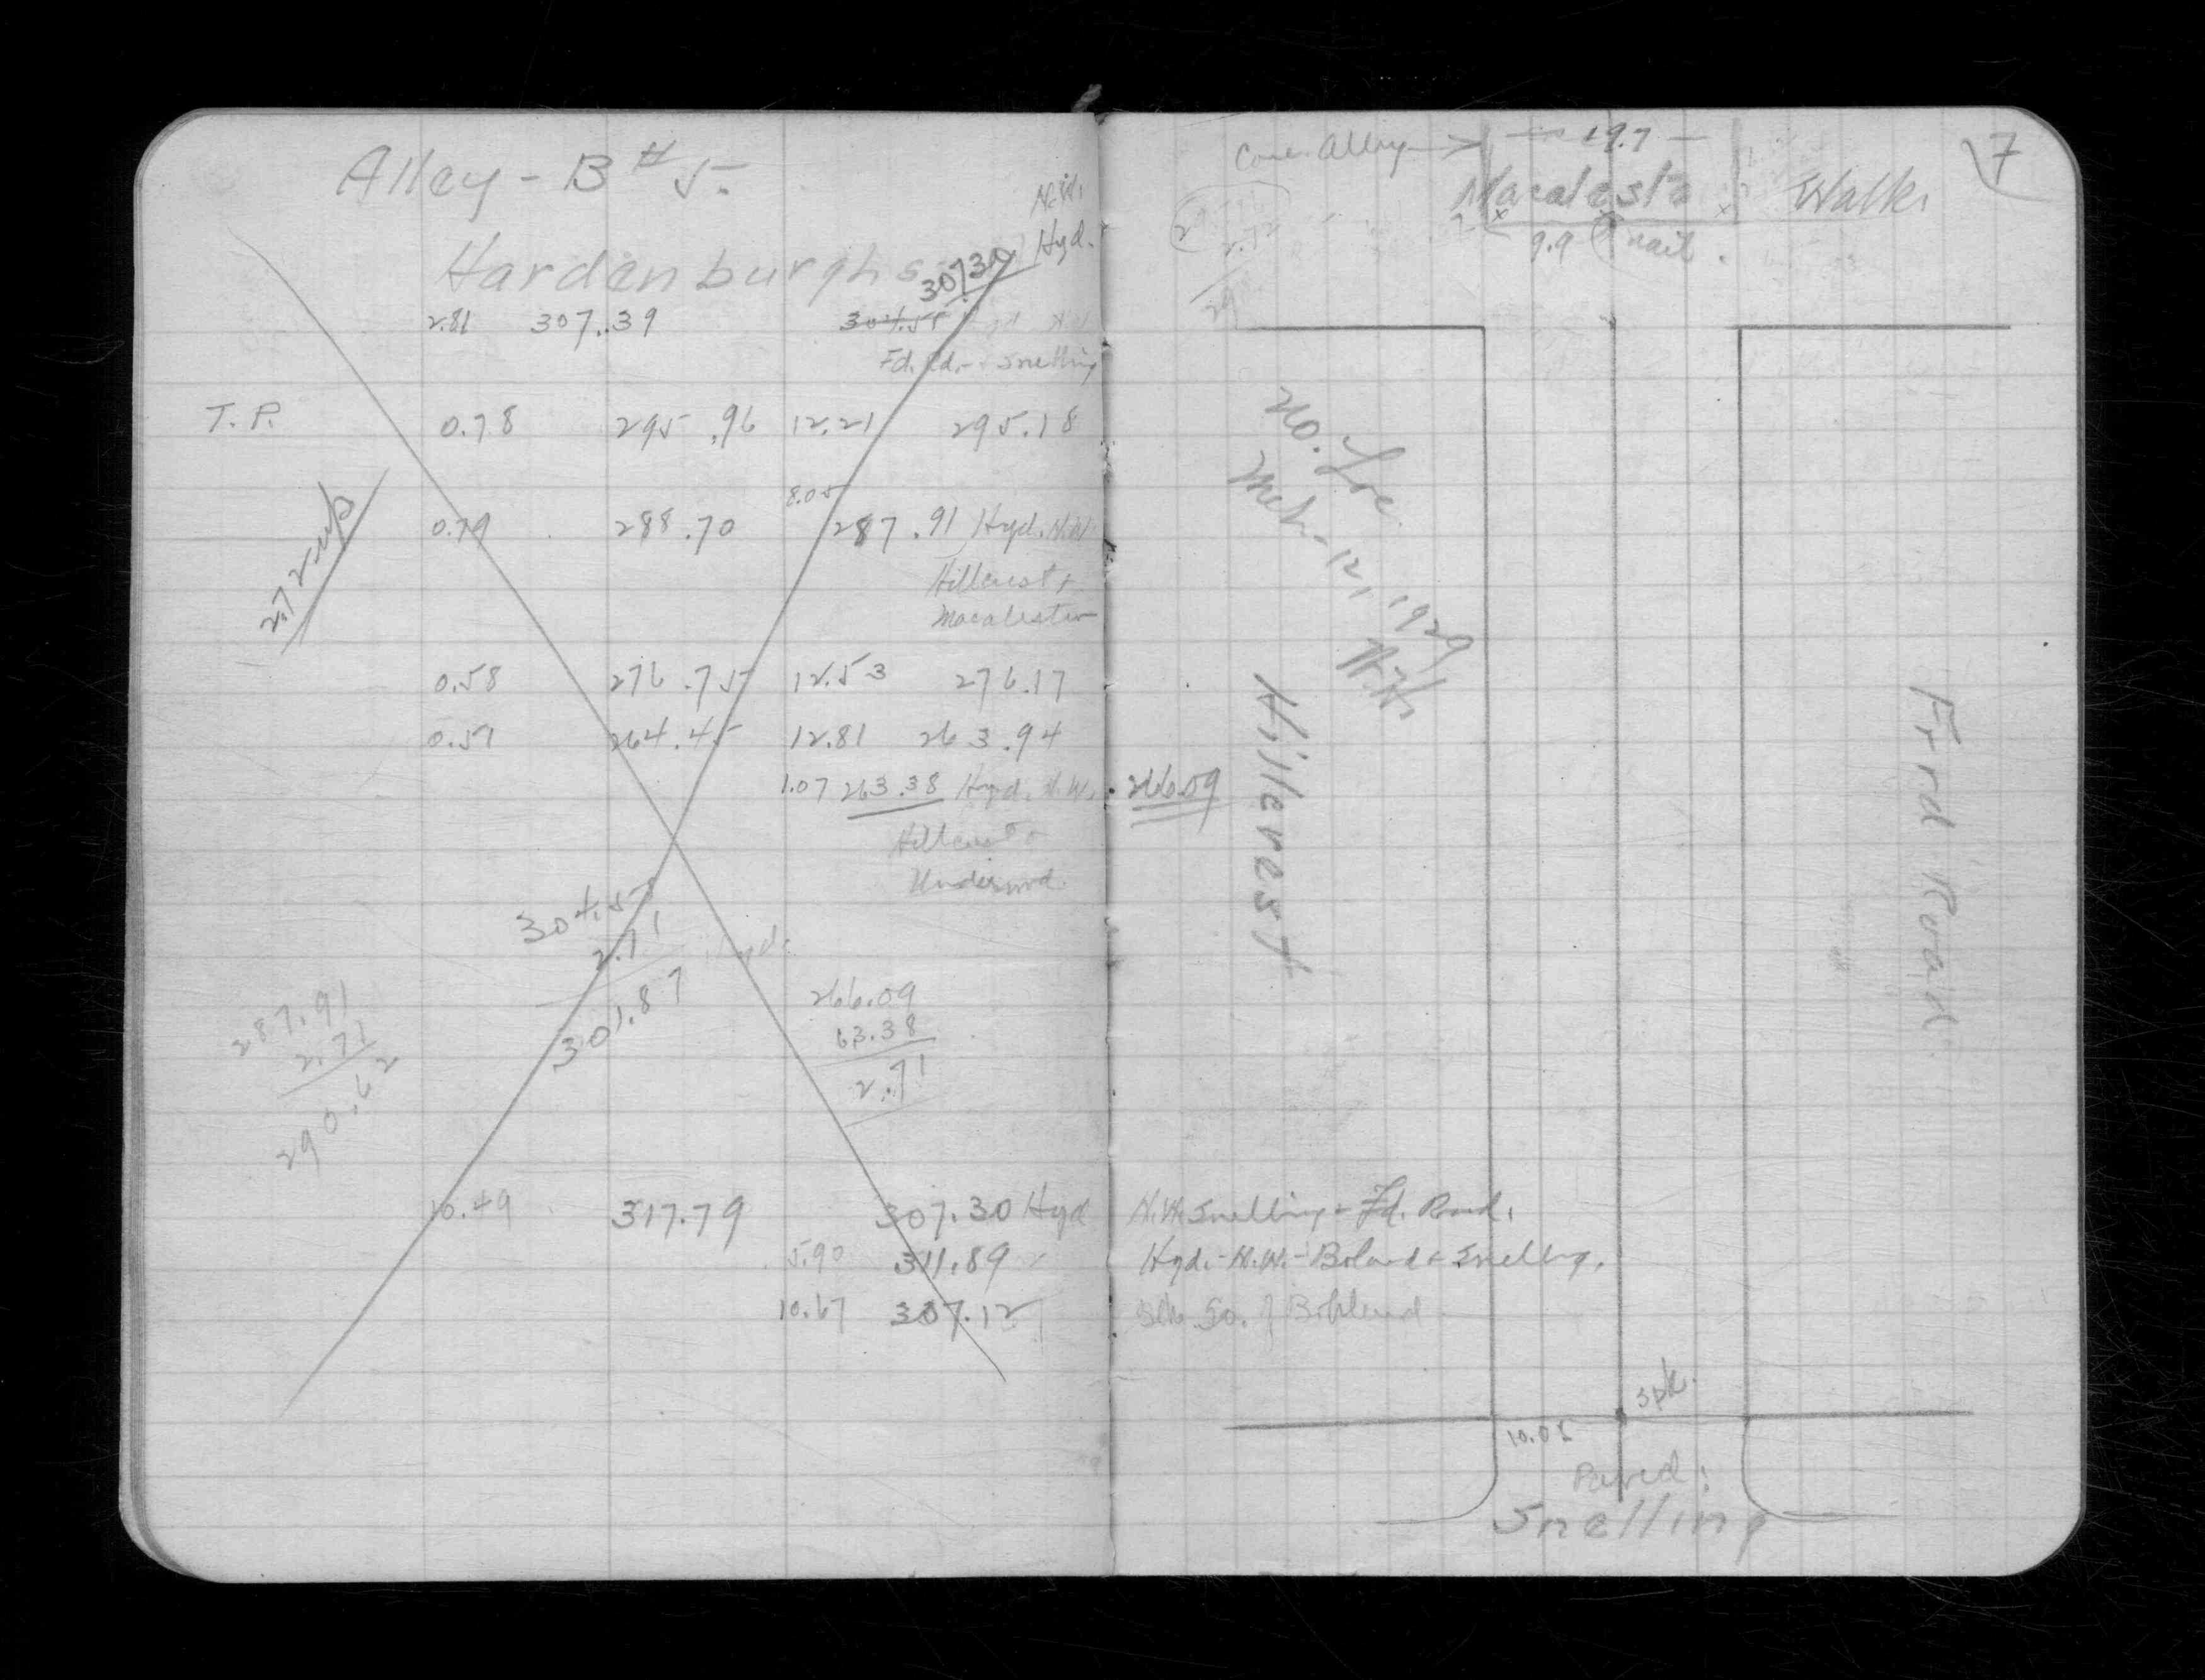 Alley - B # 5.
Hardenburghs
N.W.
Hyd.
307.30
2.81 307.39 304.58
Fd. Rd. - Snelling
T.P. 0.78 295.96 12.21 295.18
8.05
0.79 288.70 287.91 Hyd. N.W.
Hillcrest +
Macalester
0.58 276.75 12.53 276.17
0.51 264.45 12.81 263.94
1.07 263.38 Hyd. N.W.
Hillcrest +
304.58
2.71
301.87
266.09
63.38
2.71
287.91
2.71
290.62
10.49 317.79 307.30 Hyd
5.90 311.89
10.67 307.12
7
Conc. Alley
19.7
Macalester Walk
9.9 nail.
No. Loc.
Mch. 12, 1929
266.09
Hillcrest
Ford Road
N.W. Snelling - Fd. Road.
Hyd. - N.W. - Boland + Snelling.
So. of Bohland
Spk.
10.05
Paved.
Snelling